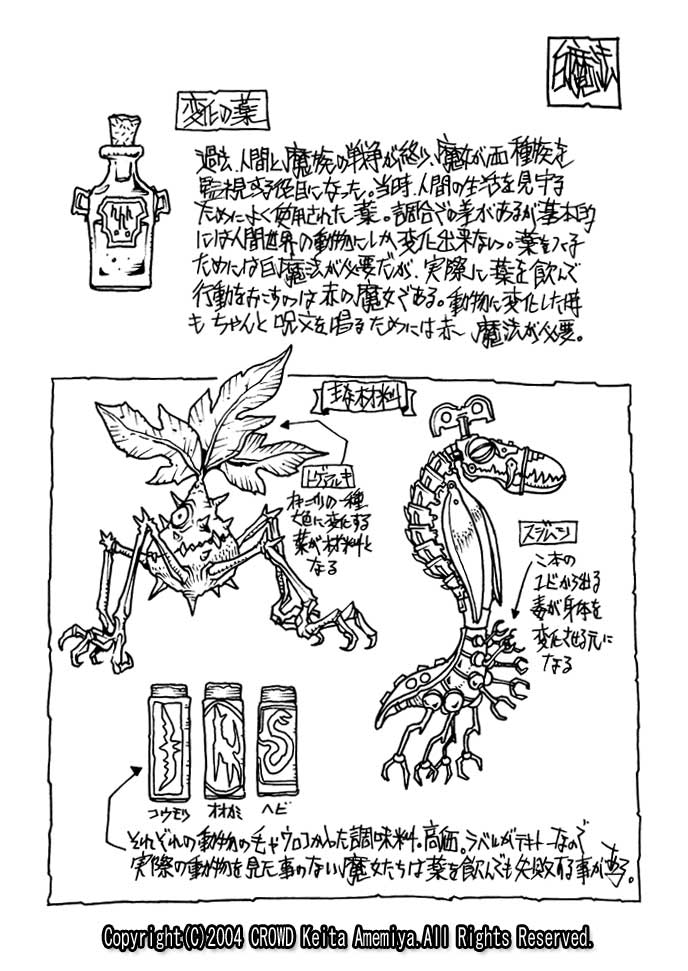 白魔法
変化の薬
過去、人間と魔族の戦争が終り、魔女が両種族を
監視する役目になった。当時、人間の生活を見守る
ためによく使用された薬。調合での差があるが基本的
には人間世界の動物にしか変化出来ない。薬をつくる
ためには白魔法が必要だが、実際に薬を飲んで
行動をおこすのは赤の魔女である。動物に変化した時
も ちゃんと呪文を唱るためには赤ー魔法が必要。
主な材料
ネッコの一種
色に変化する
葉が材料と
なる
スジムシ
二本の
ユビから出る
毒が身体を
変化させる元に
なる
コウモリ オオカミ ヘビ
それぞれの動物の毛やウロコが入った調味料。高価。ラベルがテキトーなので
実際の動物を見た事のない魔女たちは薬を飲んでも失敗する事がある。
Copyright(C)2004 CROWD Keita Amemiya.All Rights Reserved.